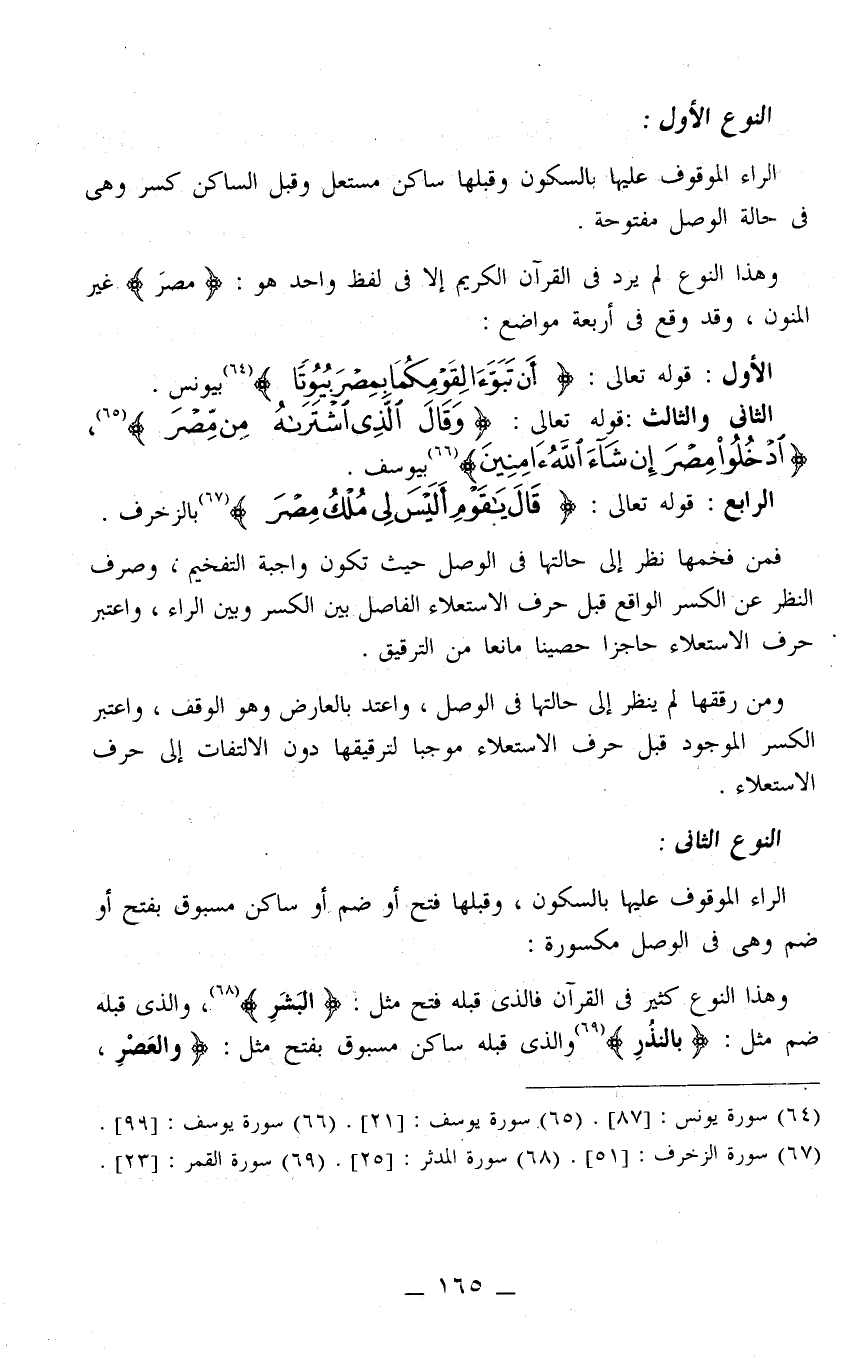 النوع الأول :
الراء الموقوف عليها بالسكون وقبلها ساكن مستعل وقبل الساكن كسر وهى
فى حالة الوصل مفتوحة .
وهذا النوع لم يرد فى القرآن الكريم إلا فى لفظ واحد هو : ﴿ مصرَ ﴾ غير
المنون ، وقد وقع فى أربعة مواضع :
الأول : قوله تعالى : ﴿ أَن تَبَوَّءَا لِقَوْمِكُمَا بِمِصْرَ بُيُوتًا ﴾(٦٤) بيونس .
الثانى والثالث :قوله تعالى : ﴿ وَقَالَ ٱلَّذِى ٱشْتَرَىٰهُ مِن مِّصْرَ ﴾(٦٥)،
﴿ ٱدْخُلُوا۟ مِصْرَ إِن شَآءَ ٱللَّهُ ءَامِنِينَ ﴾(٦٦) بيوسف .
الرابع : قوله تعالى : ﴿ قَالَ يَٰقَوْمِ أَلَيْسَ لِى مُلْكُ مِصْرَ ﴾(٦٧) بالزخرف .
فمن فخمها نظر إلى حالتها فى الوصل حيث تكون واجبة التفخيم ، وصرف
النظر عن الكسر الواقع قبل حرف الاستعلاء الفاصل بين الكسر وبين الراء ، واعتبر
حرف الاستعلاء حاجزا حصينا مانعا من الترقيق .
ومن رققها لم ينظر إلى حالتها فى الوصل ، واعتد بالعارض وهو الوقف ، واعتبر
الكسر الموجود قبل حرف الاستعلاء موجبا لترقيقها دون الالتفات إلى حرف
الاستعلاء .
النوع الثانى :
الراء الموقوف عليها بالسكون ، وقبلها فتح أو ضم أو ساكن مسبوق بفتح أو
ضم وهى فى الوصل مكسورة :
وهذا النوع كثير فى القرآن فالذى قبله فتح مثل : ﴿ البَشَرِ ﴾(٦٨)، والذى قبله
ضم مثل : ﴿ بالنذُرِ ﴾(٦٩) والذى قبله ساكن مسبوق بفتح مثل : ﴿ والعَصْرِ ،
(٦٤) سورة يونس : [٨٧] . (٦٥) سورة يوسف : [٢١] . (٦٦) سورة يوسف : [٩٩] .
(٦٧) سورة الزخرف : [٥١] . (٦٨) سورة المدثر : [٢٥] . (٦٩) سورة القمر : [٢٣] .
ـ ١٦٥ ـ